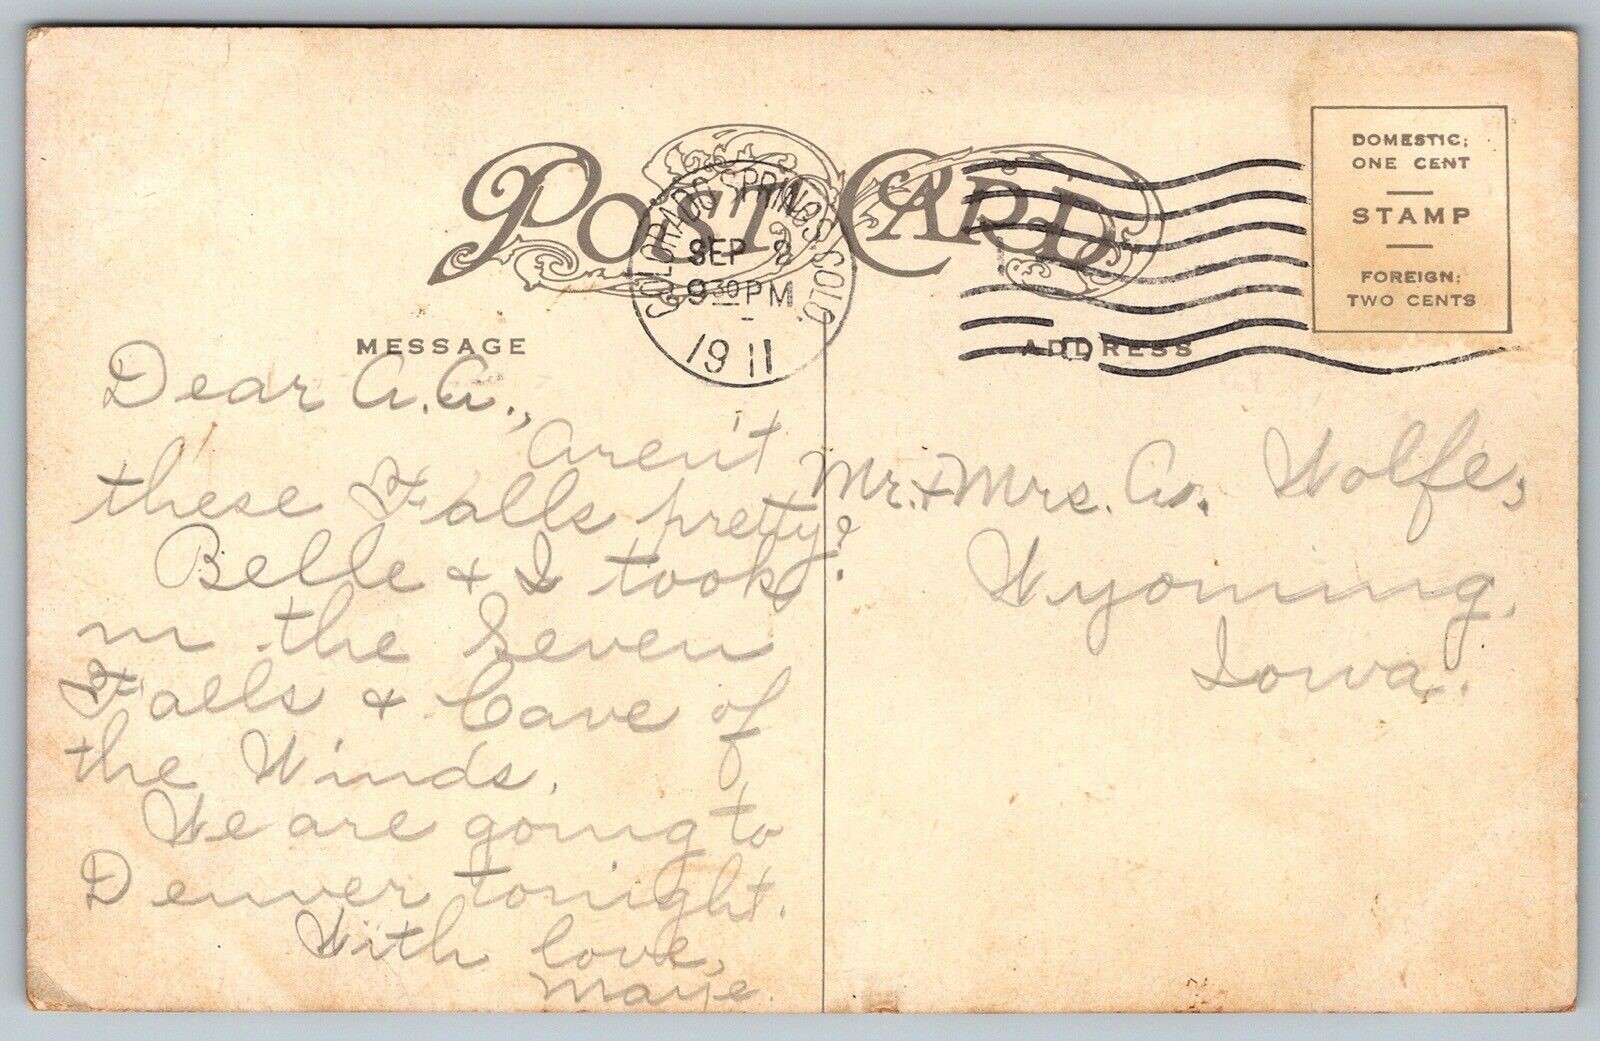 POST CARD
COLORADO SPRINGS COLO.
SEP 2
930 PM
1911
DOMESTIC:
ONE CENT
STAMP
FOREIGN:
TWO CENTS
MESSAGE
Dear A.A.,
Aren't
these Falls pretty?
Belle & I took
in the Seven
Falls & Cave of
the Winds.
We are going to
Denver tonight.
With love,
Maye.
ADDRESS
Mr. & Mrs. A. Wolfe,
Wyoming,
Iowa.